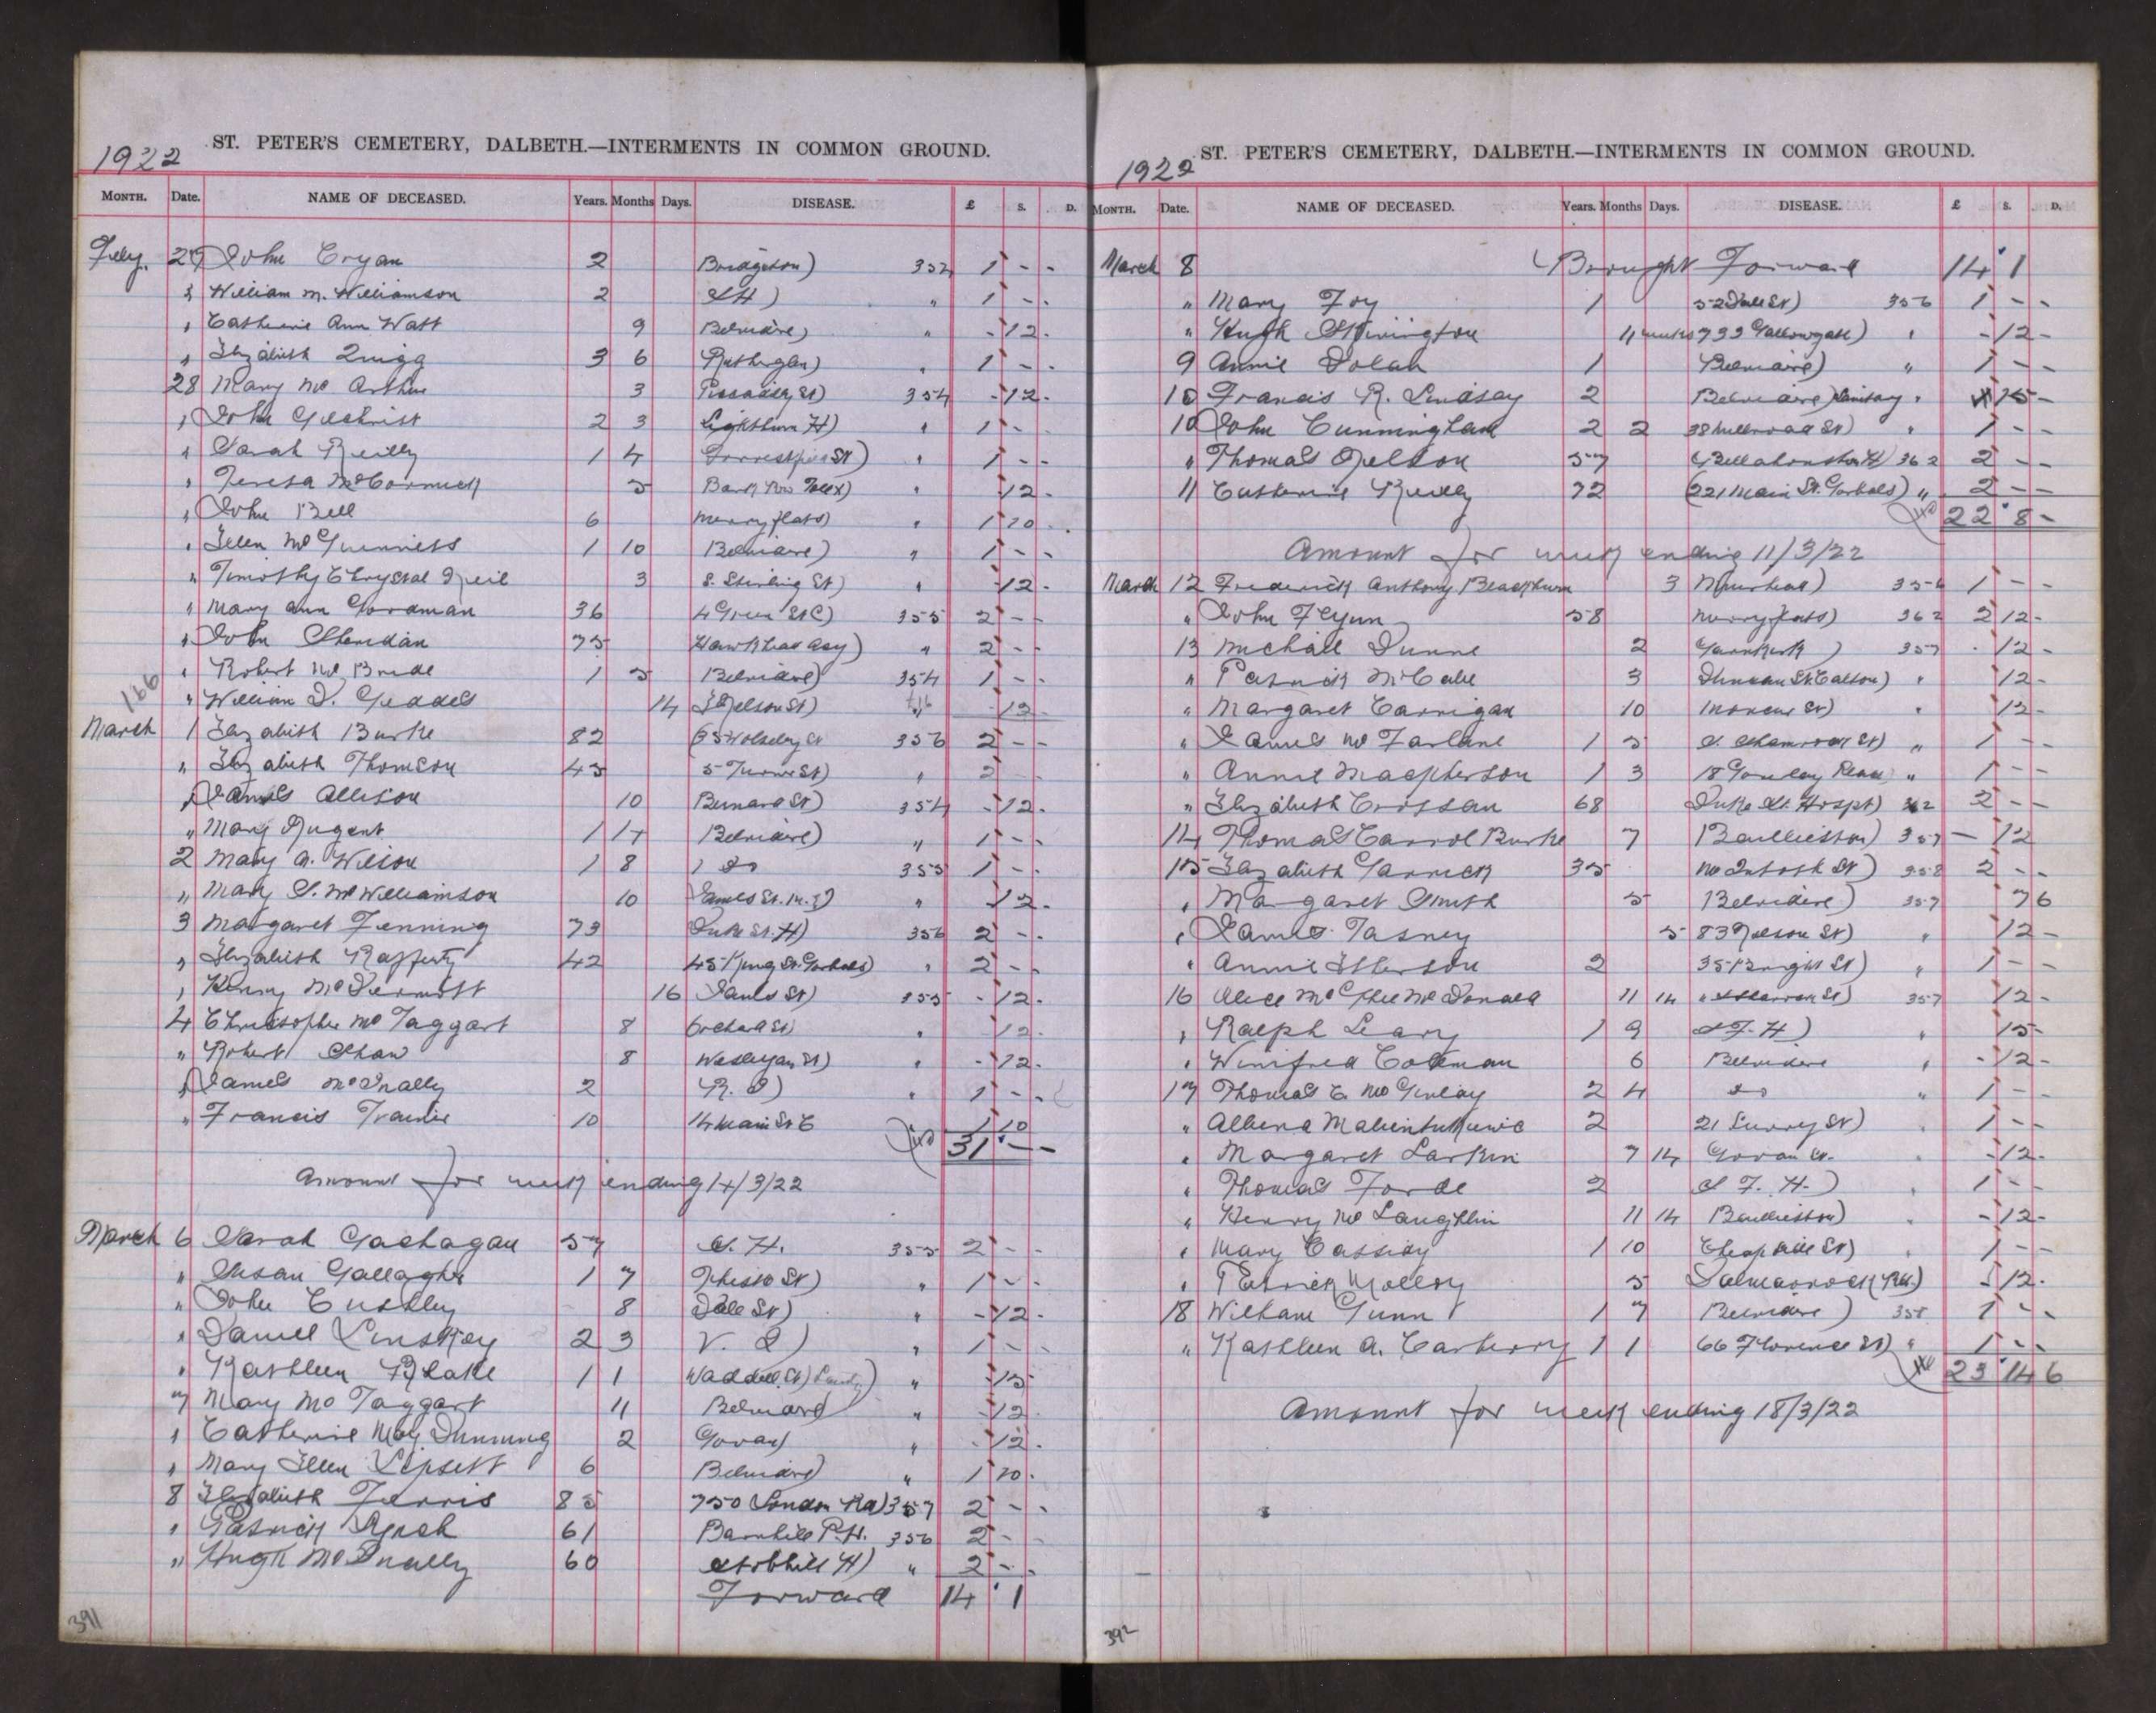 1922 ST. PETER'S CEMETERY, DALBETH.—INTERMENTS IN COMMON GROUND.
MONTH. Date. NAME OF DECEASED. Years. Months Days. DISEASE. £ S. D.
Feby. 27 John Cryan 2 Bridgeton) 352 1 - -
" William M. Williamson 2 " 1 - -
" Catherine Ann Watt 9 Belvidere) " - 12 -
" Elizabeth Quigg 3 6 Rutherglen) " 1 - -
28 Mary Mc Arthur 3 Piccadilly St) 354 - 12 -
" John Gilchrist 2 3 Lightburn H) " 1 - -
" Sarah Reilly 1 4 St) " 1 - -
" Teresa McCormick 5 Bank Row Tollx) " - 12 -
" John Bell 6 Merryflats) " 1 10 -
" Ellen McGuinness 1 10 Belvidere) " 1 - -
" Timothy Chrystal Neil 3 S. Stirling St) " - 12 -
" Mary Ann Goodman 36 4 Green St C) 355 2 - -
" John Sheridan 75 Hawkhead Asy) " 2 - -
" Robert Mc Bride 1 5 Belvidere) 354 1 - -
166
" William D. Geddes 14 Nelson St) " - 12 -
March 1 Elizabeth Burke 82 Wolseley St 356 2 - -
" Elizabeth Thomson 45 5 Turner St) " 2 - -
" James Allison 10 Bernard St) 354 - 12 -
" Mary Nugent 1 4 Belvidere) " 1 - -
2 Mary A. Wilson 1 8 Do 355 1 - -
" Mary S. McWilliamson 10 James St. " - 12 -
3 Margaret Fenning 73 Duke St. H) 356 2 - -
" Elizabeth Rafferty 42 45 King St. Gorbals) " 2 - -
" Henry McDermott 16 James St) 355 - 12 -
4 Christopher McTaggart 8 Orchard St) 12 -
" Robert Shaw 8 Wesleyan St) " - 12 -
" James McInally 2 R. I) " 1 - -
" Francis Trainer 10 14 Main St C 1 10
31 - -
Amount for week ending 4/3/22
March 6 Sarah Gachagan 57 S. H. 355 2 - -
" Susan Gallagher 1 7 St) " 1 - -
" John Cuskley 8 Dale St) " - 12 -
" Daniel Linskey 2 3 V. I) " 1 - -
" Kathleen Blake 1 1 Waddell St) " - 15
7 Mary McTaggart 11 Belvidere) " - 12
" Catherine May Dunning 2 Govan) " - 12 -
" Mary Ellen Lipsett 6 Belvidere) " 1 10 -
8 Elizabeth Ferris 85 750 London Rd) 357 2 - -
" Patrick Lynch 61 Barnhill P.H. 356 2 - -
" Hugh McInally 60 Stobhill H) " 2 - -
Forward 14 1
391
1922 ST. PETER'S CEMETERY, DALBETH.—INTERMENTS IN COMMON GROUND.
MONTH. Date. NAME OF DECEASED. Years. Months Days. DISEASE. £ S. D.
March 8 Brought Forward 14 1
" Mary Foy 1 52 Dale St) 356 1 - -
" Hugh Skivington 11 weeks 733 Gallowgate) " - 12 -
9 Annie Dolan 1 Belvidere) " 1 - -
10 Francis R. Lindsay 2 Belvidere) " 15 -
10 John Cunningham 2 2 38 Millroad St) " 1 - -
" Thomas Nelson 57 Bellahouston H) 362 2 - -
11 Catherine Reilly 72 (221 Main St. Gorbals) " 2 - -
22 8 -
Amount for week ending 11/3/22
March 12 Frederick Anthony Blackburn 3 Muirhead) 356 1 - -
" John Flynn 58 Merryflats) 362 2 12 -
13 Michael Dunne 2 Garnkirk) 357 - 12 -
" Patrick McCabe 3 Duncan St. Calton) " 12 -
" Margaret Carrigan 10 St) " 12 -
" James Mc Farlane 1 5 S. Shamrock St) " 1 - -
" Annie Macpherson 1 3 18 Gourlay " 1 - -
" Elizabeth Crossan 68 Duke St. Hospt) 362 2 - -
14 Thomas Carrol Burke 7 Baillieston) 357 - 12
15 Elizabeth Garrick 35 McIntosh St) 358 2 - -
" Margaret Smith 5 Belvidere) 357 7 6
" James Tasney 5 83 Nelson St) " 12 -
" Annie Etherson 2 35 Bright St) " 1 - -
16 Alice McPhee McDonald 11 14 St) 357 12 -
" Ralph Leary 1 9 S F. H) " 15 -
" Winifred Coleman 6 Belvidere " - 12 -
17 Thomas C. McGinlay 2 4 Do " 1 -
" Albena 2 21 Surrey St) " 1 - -
" Margaret Larkin 7 14 Govan St. - 12 -
" Thomas Forde 2 S F. H.) 1 - -
" Henry McLaughlin 11 14 Baillieston) " - 12 -
" Mary Cassidy 1 10 Cheapside St) " 1 - -
" Patrick Molloy 5 Dalmarnock Rd.) - 12 -
18 William Gunn 1 7 Belvidere) 358 1 - -
" Kathleen A. Carberry 1 1 66 Florence St) " 1 - -
23 14 6
Amount for week ending 18/3/22
392